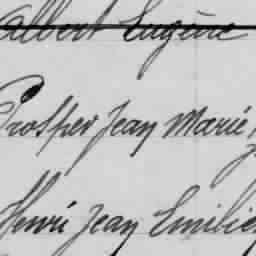 Albert Eugène
Prosper Jean Marie
Henri Jean Emilie